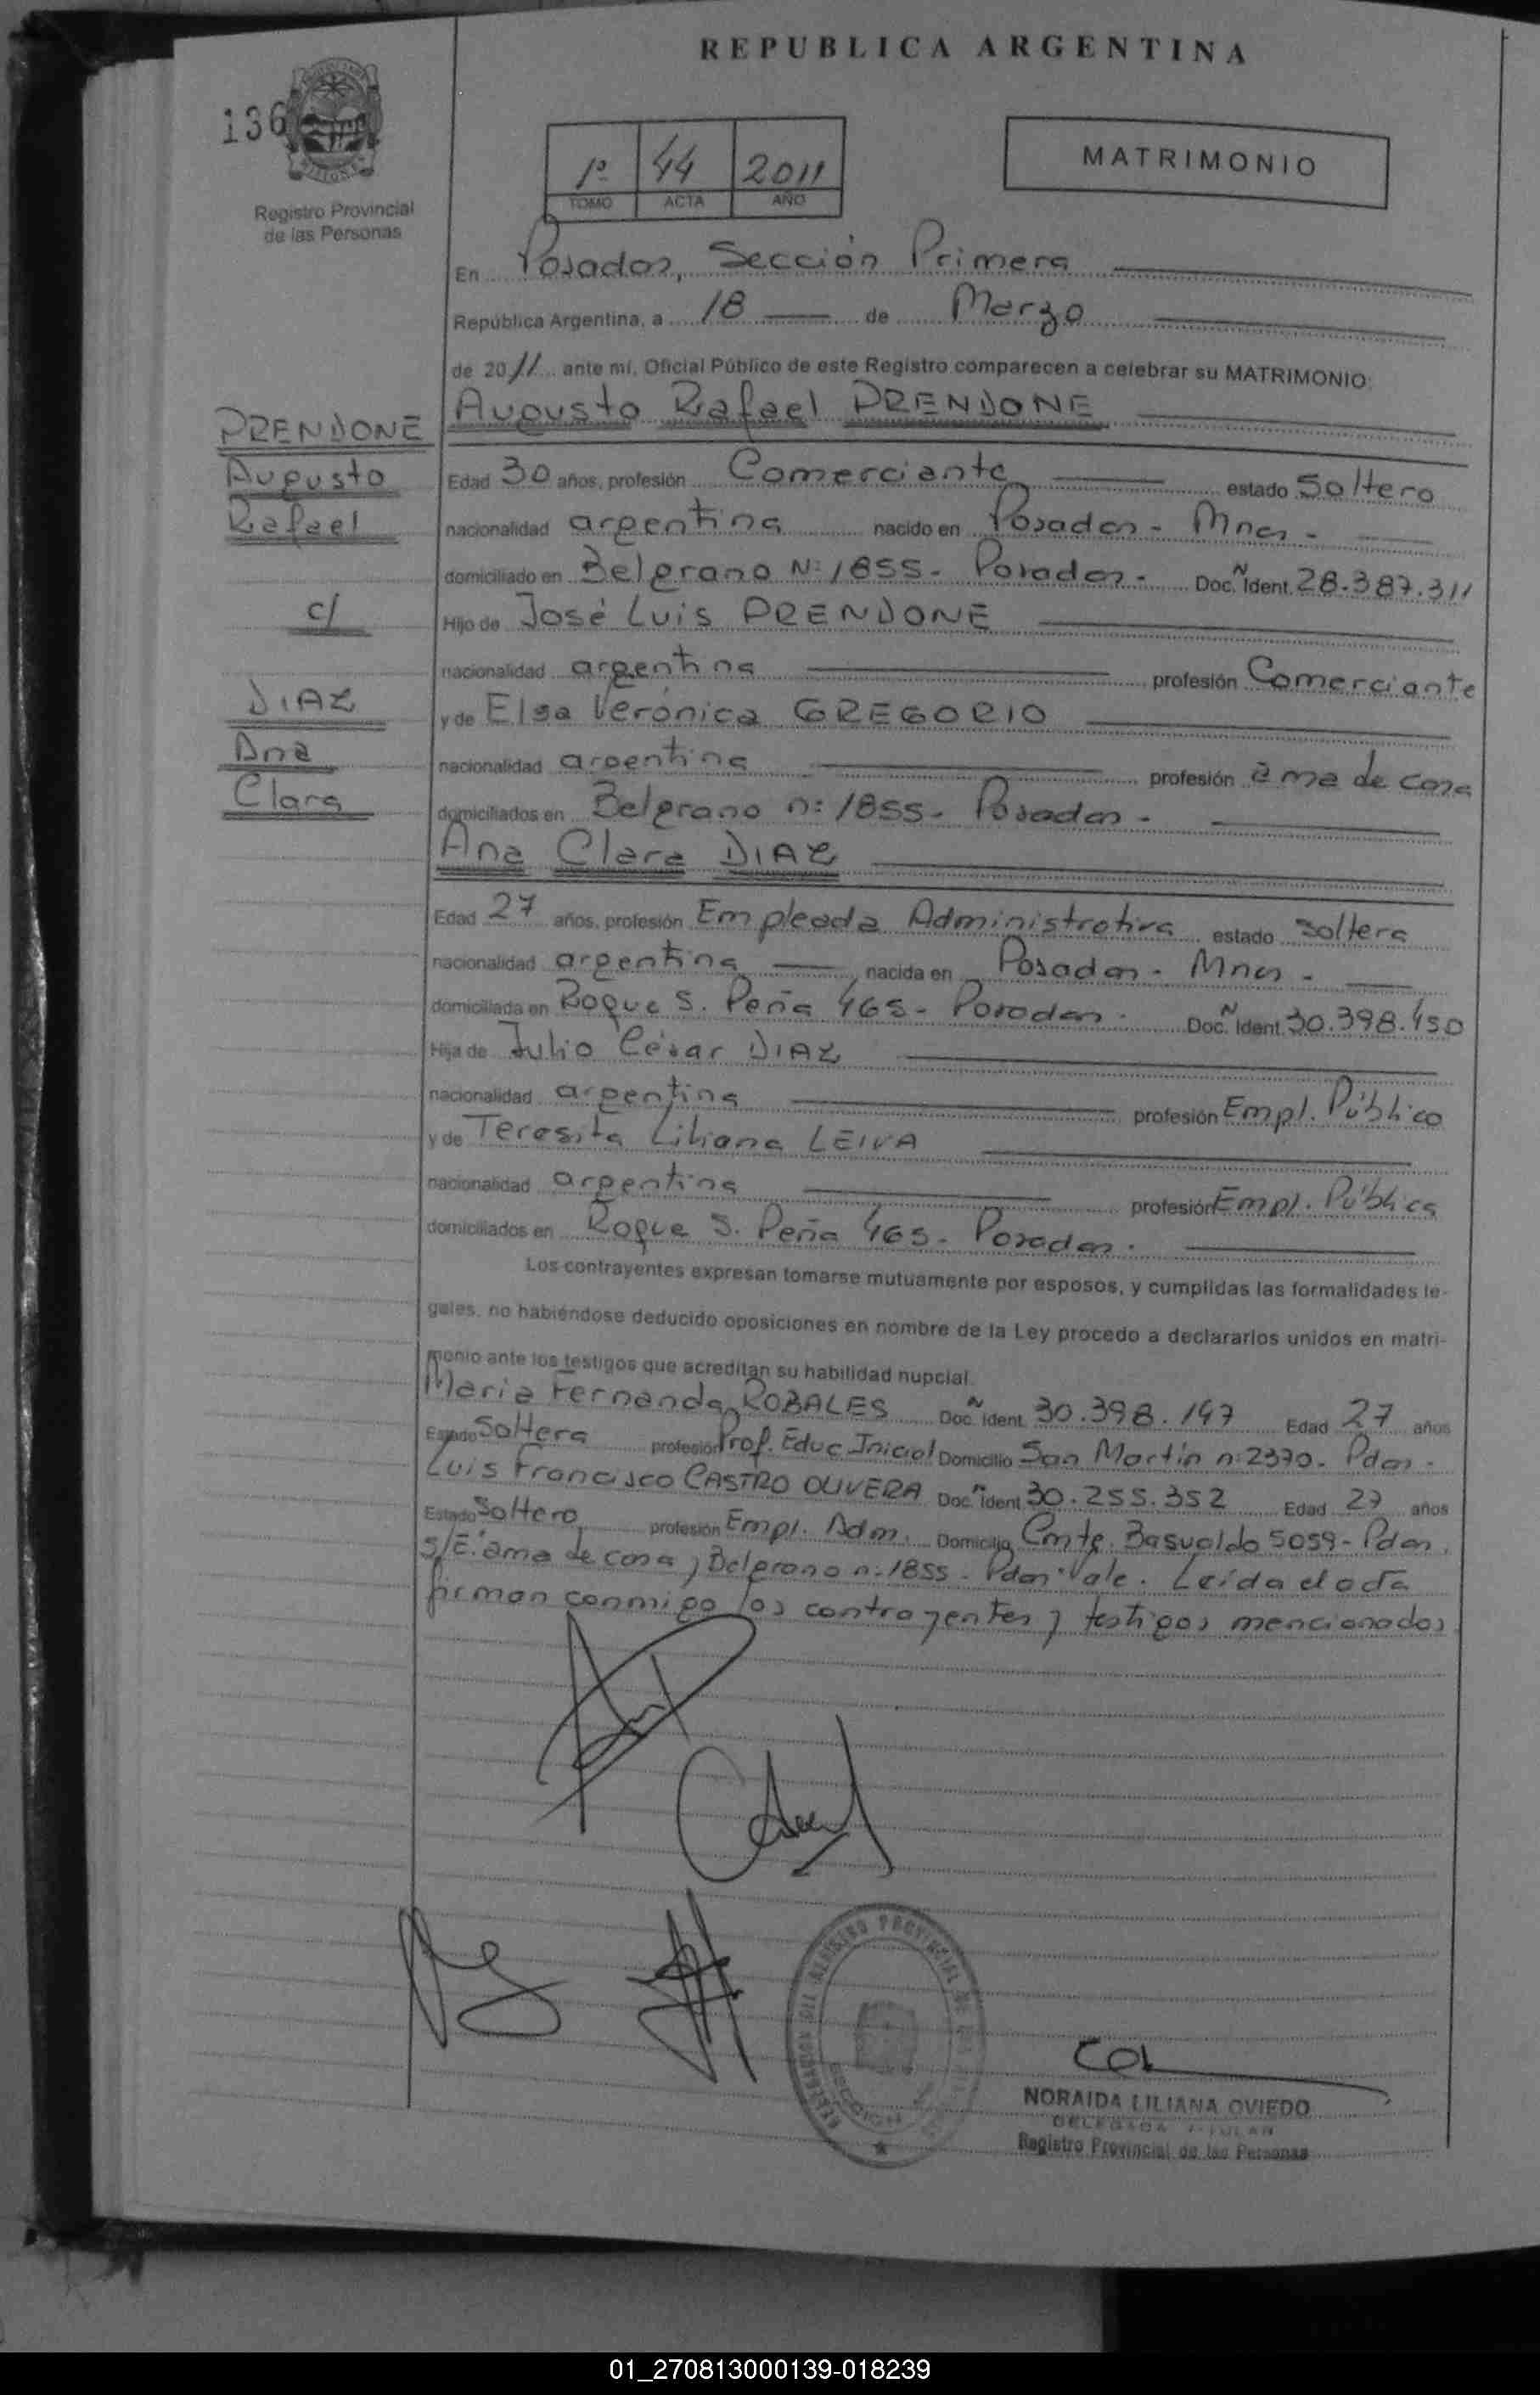 REPUBLICA ARGENTINA
136
Registro Provincial
de las Personas
1º 44 2011
TOMO ACTA AÑO
MATRIMONIO
En Posadas, Sección Primera
República Argentina, a 18 de Marzo
de 2011 ante mí, Oficial Público de este Registro comparecen a celebrar su MATRIMONIO:
Augusto Rafael PRENDONE
PRENDONE
Augusto
Rafael
c/
DIAZ
Ana
Clara
Edad 30 años, profesión Comerciante estado Soltero
nacionalidad argentina nacido en Posadas - Mnes -
domiciliado en Belgrano Nº 1855 - Posadas - Doc. Ñ Ident. 28.387.311
Hijo de José Luis PRENDONE
nacionalidad argentina profesión Comerciante
y de Elsa Verónica GREGORIO
nacionalidad argentina profesión ama de casa
domiciliados en Belgrano nº 1855 - Posadas -
Ana Clara DIAZ
Edad 27 años, profesión Empleada Administrativa estado soltera
nacionalidad argentina nacida en Posadas - Mnes -
domiciliada en Roque S. Peña 465 - Posadas - Doc. Ñ Ident. 30.398.450
Hija de Julio César DIAZ
nacionalidad argentina profesión Empl. Público
y de Teresita Liliana LEIVA
nacionalidad argentina profesión Empl. Pública
domiciliados en Roque S. Peña 465 - Posadas -
Los contrayentes expresan tomarse mutuamente por esposos, y cumplidas las formalidades le-
gales, no habiéndose deducido oposiciones en nombre de la Ley procedo a declararlos unidos en matri-
monio ante los testigos que acreditan su habilidad nupcial.
María Fernanda ROBALES Doc. Ñ Ident. 30.398.197 Edad 27 años
Estado Soltera profesión Prof. Educ Inicial Domicilio San Martín nº 2370 - Pdas -
Luis Francisco CASTRO OLIVERA Doc. Ñ Ident. 30.255.352 Edad 27 años
Estado Soltero profesión Empl. Adm. Domicilio Cmte. Basualdo 5059 - Pdas.
s/E: ama de casa, Belgrano nº 1855 - Pdas. Vale. Leída el acta
firman conmigo los contrayentes y testigos mencionados.
NORAIDA LILIANA OVIEDO
DELEGADA TITULAR
Registro Provincial de las Personas
01_270813000139-018239